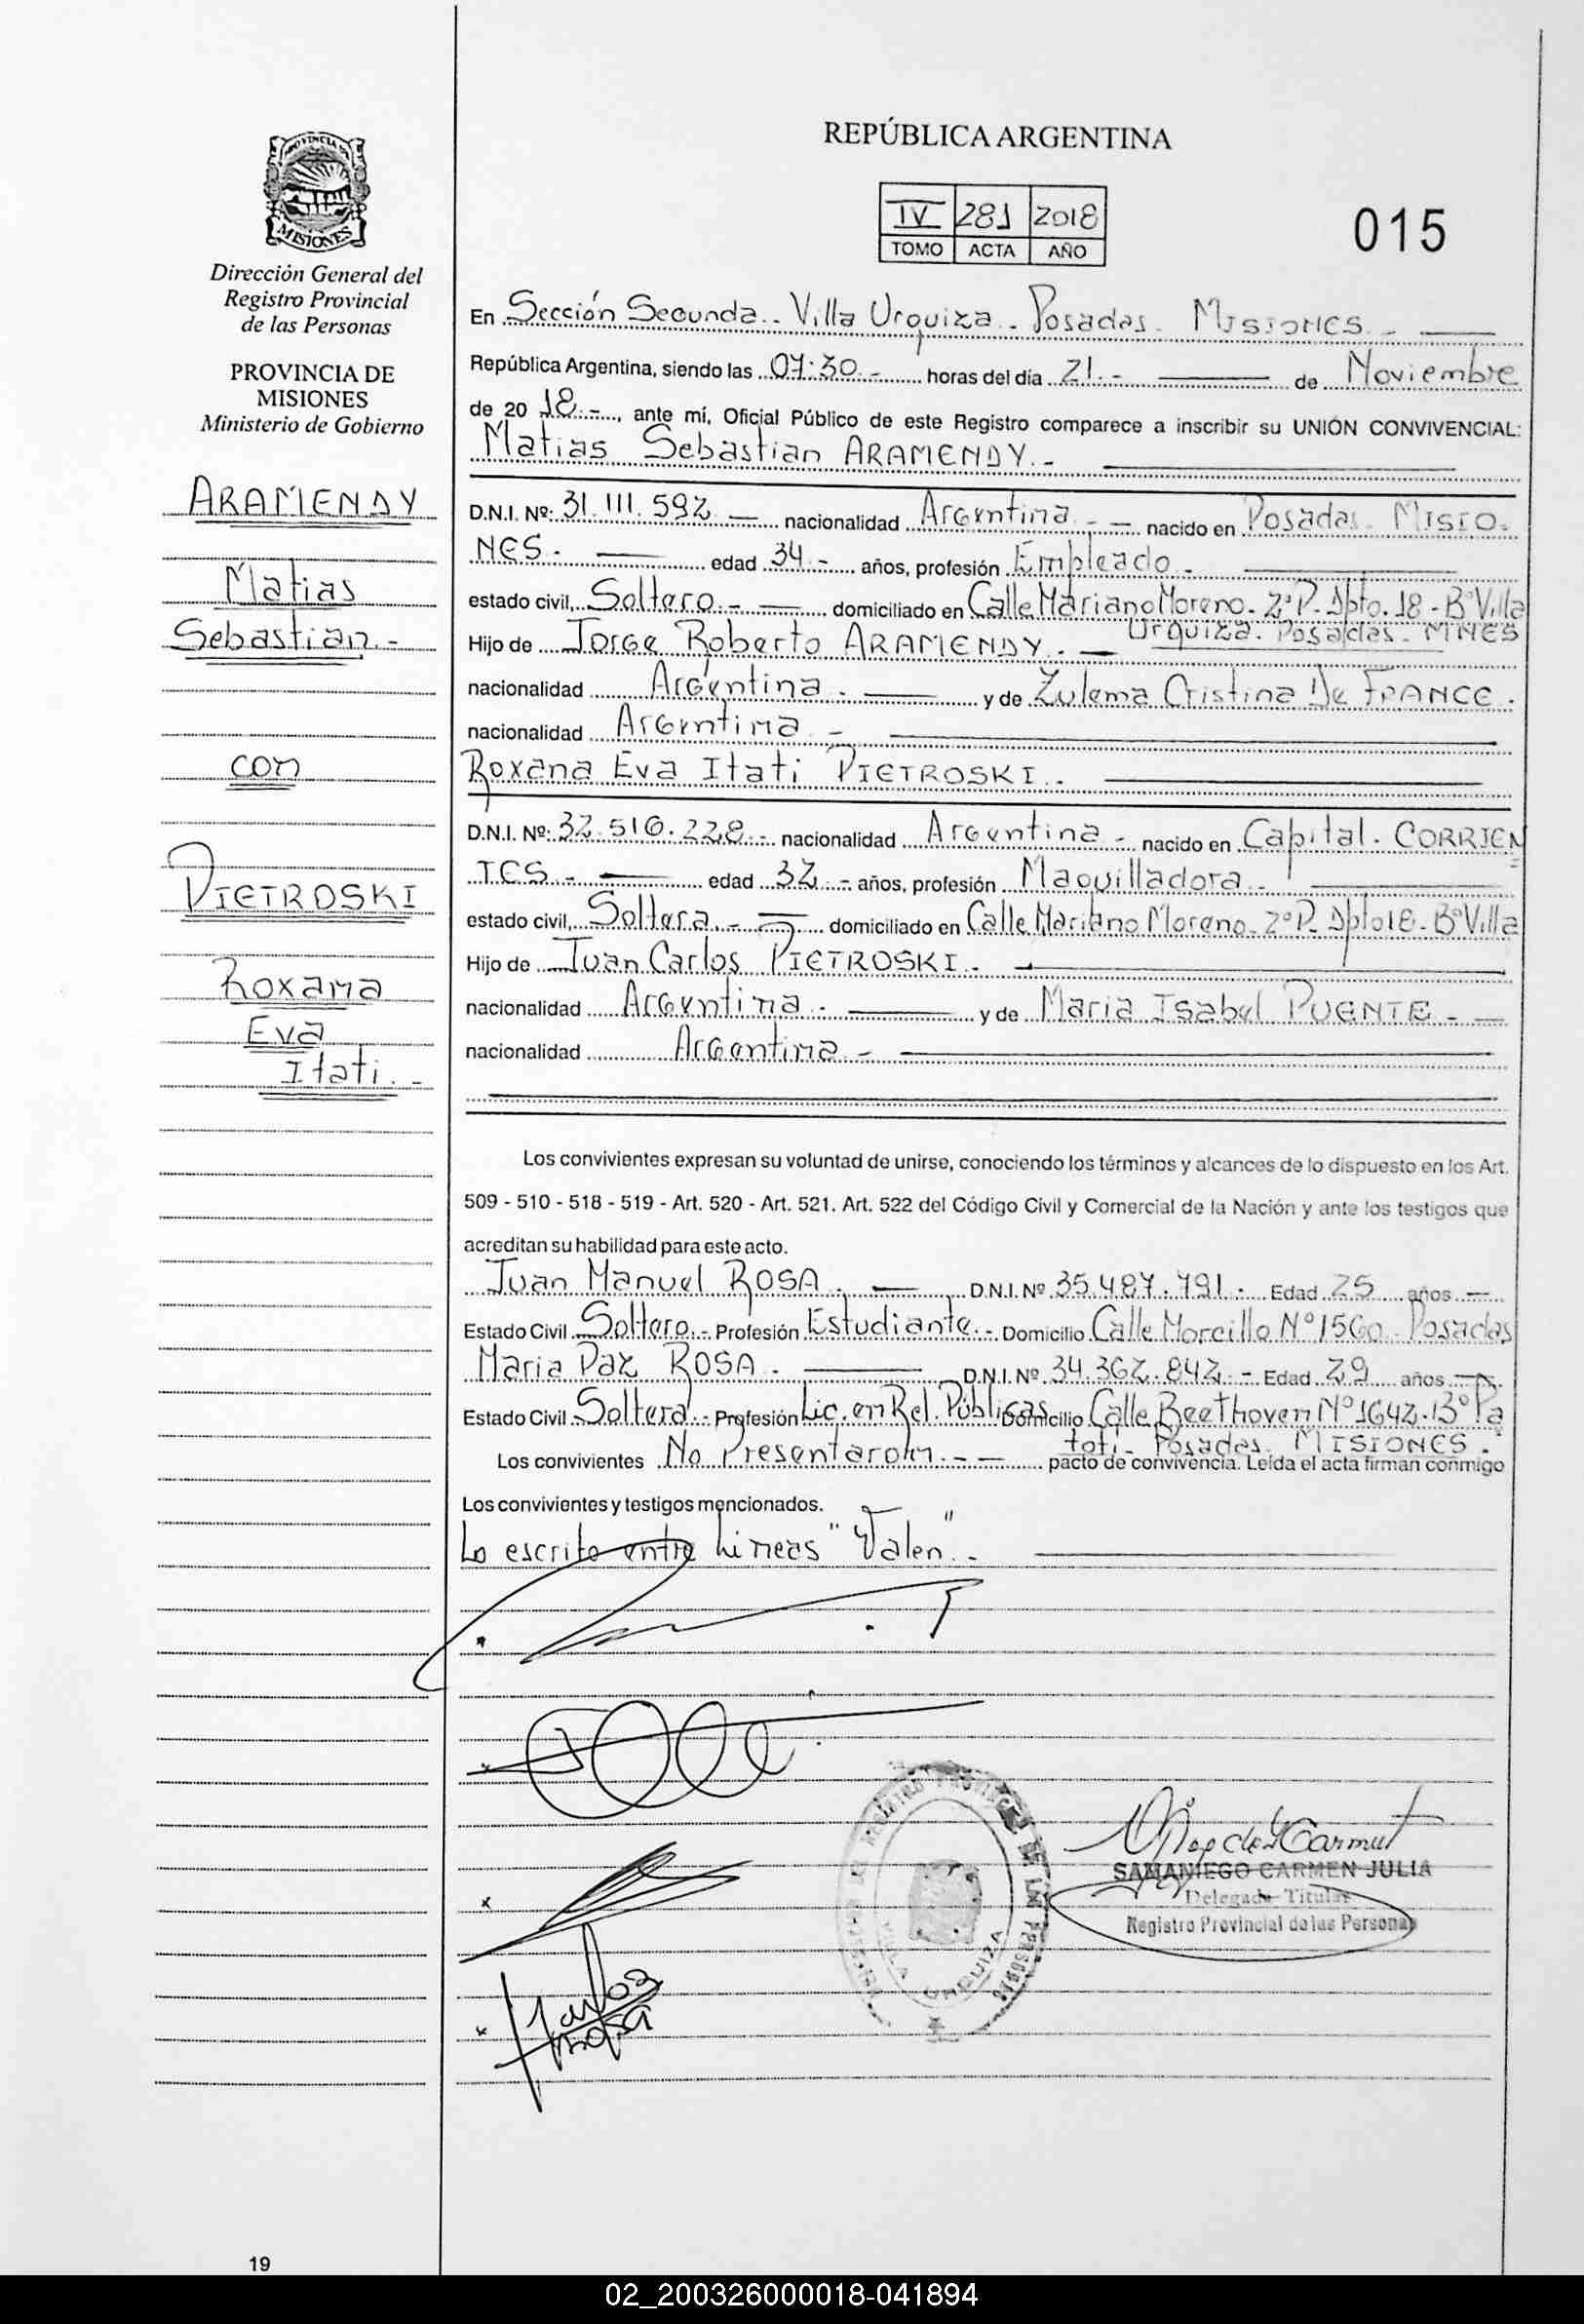 PROVINCIA DE
MISIONES
Dirección General del
Registro Provincial
de las Personas
PROVINCIA DE
MISIONES
Ministerio de Gobierno
ARAMENDY
Matias
Sebastian.-
con
PIETROSKI
Roxana
Eva
Itati.-
REPÚBLICA ARGENTINA
IV 281 2018
TOMO ACTA AÑO
015
En Sección Segunda.- Villa Urquiza.- Posadas.- MISIONES.-
República Argentina, siendo las 07:30.- horas del día 21.- de Noviembre
de 20 18.-, ante mí, Oficial Público de este Registro comparece a inscribir su UNIÓN CONVIVENCIAL:
Matias Sebastian ARAMENDY.-
D.N.I. Nº: 31.111.592 nacionalidad Argentina.- nacido en Posadas. MISIO-
NES.- edad 34.- años, profesión Empleado.-
estado civil, Soltero.- domiciliado en Calle Mariano Moreno. 2°P. Dpto. 18.- B° Villa
Urquiza. Posadas. MNES
Hijo de Jorge Roberto ARAMENDY.-
nacionalidad Argentina.- y de Zulema Cristina De FRANCE.
nacionalidad Argentina.-
Roxana Eva Itati PIETROSKI.-
D.N.I. Nº: 32.510.228.- nacionalidad Argentina.- nacido en Capital. CORRIEN=
TES.- edad 32.- años, profesión Maquilladora.-
estado civil, Soltera.- domiciliado en Calle Mariano Moreno. 2°P. Dpto18.- B° Villa
Hijo de Juan Carlos PIETROSKI.-
nacionalidad Argentina.- y de Maria Isabel PUENTE.-
nacionalidad Argentina.-
Los convivientes expresan su voluntad de unirse, conociendo los términos y alcances de lo dispuesto en los Art.
509 - 510 - 518 - 519 - Art. 520 - Art. 521. Art. 522 del Código Civil y Comercial de la Nación y ante los testigos que
acreditan su habilidad para este acto.
Juan Manuel ROSA.- D.N.I. Nº 35.487.791.- Edad 25 años
Estado Civil Soltero.- Profesión Estudiante.- Domicilio Calle Morcillo N°1560. Posadas
Maria Paz ROSA.- D.N.I. Nº 34.362.842.- Edad 29 años
Estado Civil Soltera.- Profesión Lic. en Rel. Públicas Domicilio Calle Beethoven N°1642.B° Pa
toti.- Posadas. MISIONES.-
Los convivientes No Presentaron.- pacto de convivencia. Leída el acta firman conmigo
Los convivientes y testigos mencionados.
Lo escrito entre lineas "Valen".-
VILLA URQUIZA
SAMANIEGO CARMEN JULIA
Delegada Titular
Registro Provincial de las Personas
19
02_200326000018-041894